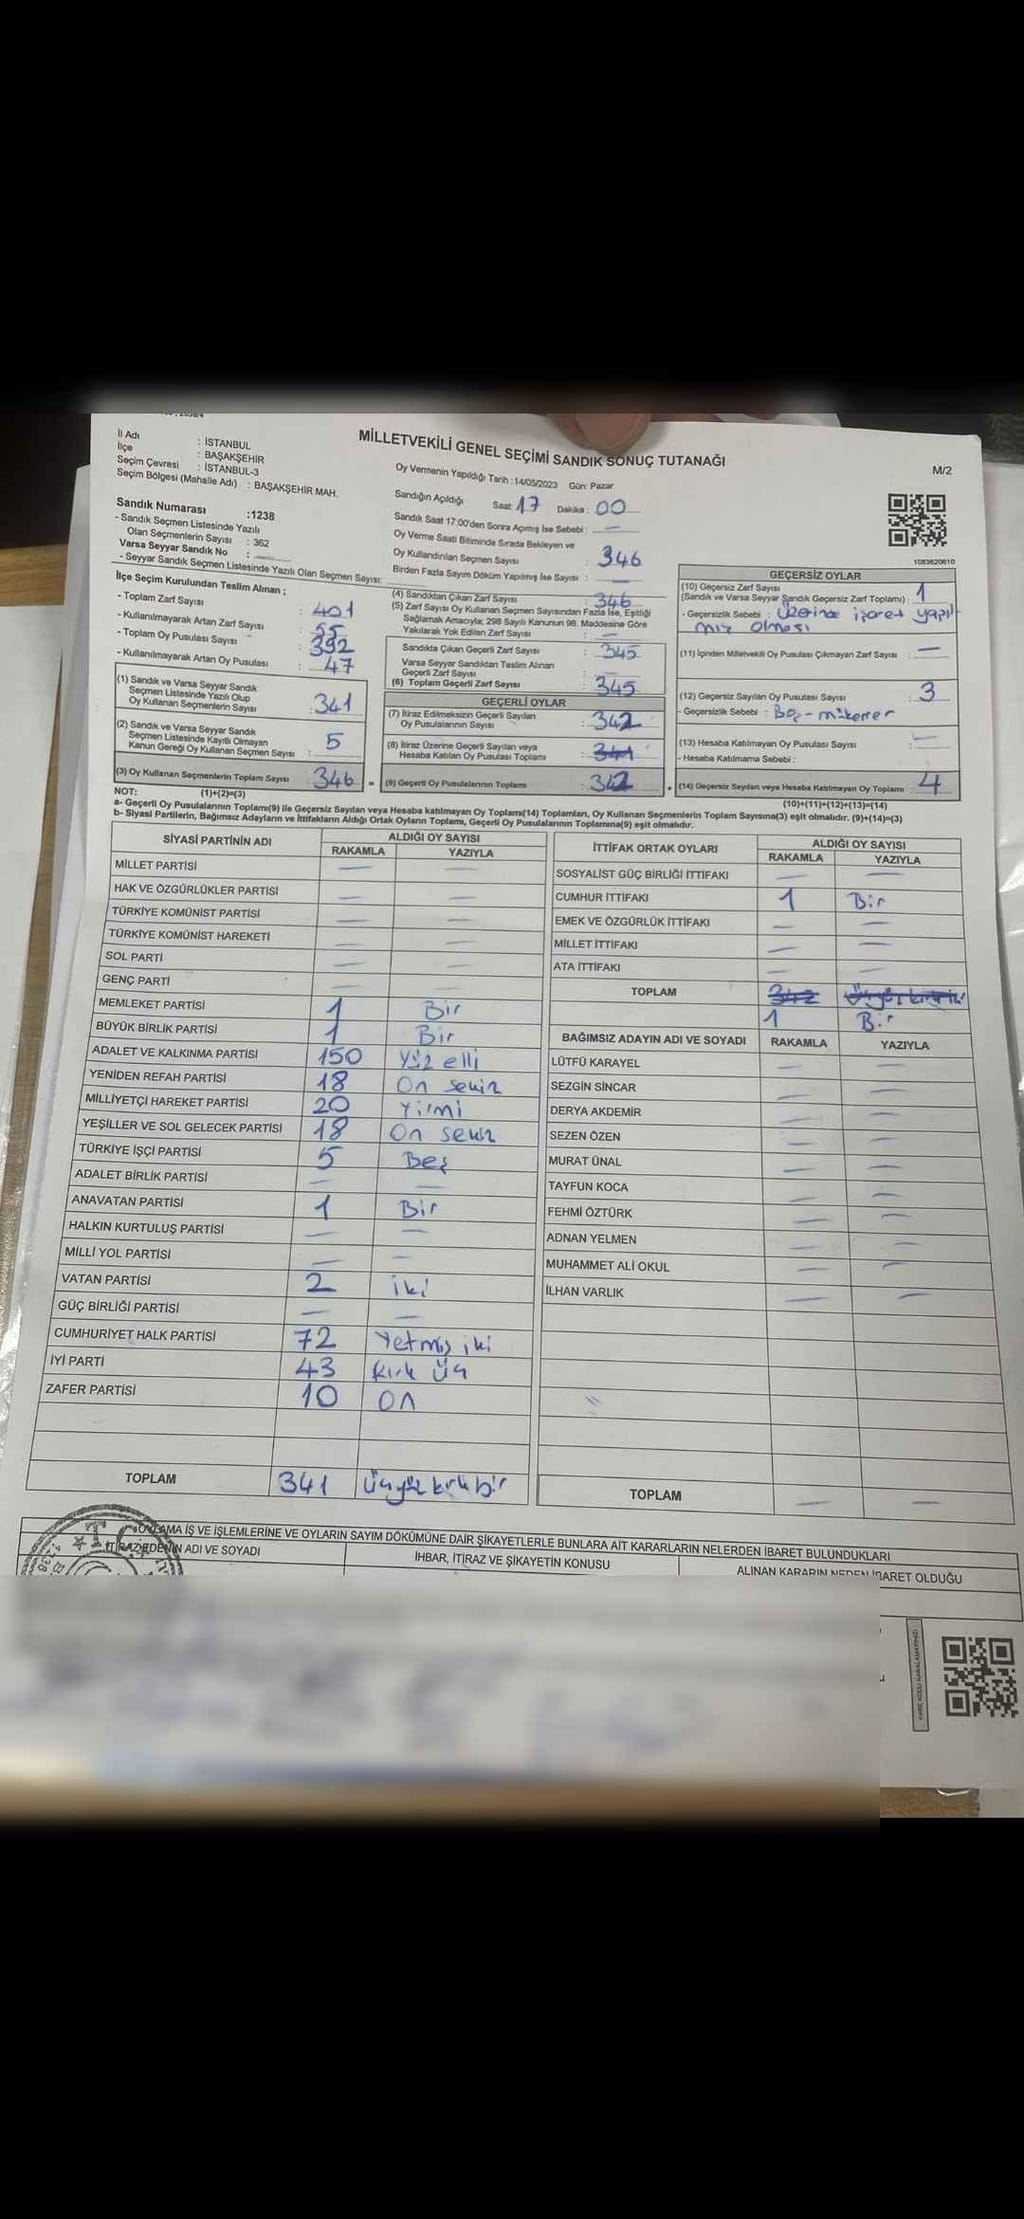 MİLLETVEKİLİ GENEL SEÇİMİ SANDIK SONUÇ TUTANAĞI
M/2
İl Adı : İSTANBUL
İlçe : BAŞAKŞEHİR
Seçim Çevresi : İSTANBUL-3
Seçim Bölgesi (Mahalle Adı) : BAŞAKŞEHİR MAH.
Sandık Numarası :1238
- Sandık Seçmen Listesinde Yazılı
Olan Seçmenlerin Sayısı : 362
Varsa Seyyar Sandık No :
- Seyyar Sandık Seçmen Listesinde Yazılı Olan Seçmen Sayısı:
Oy Vermenin Yapıldığı Tarih :14/05/2023 Gün: Pazar
Sandığın Açıldığı Saat: 17 Dakika : 00
Sandık Saat 17:00'den Sonra Açımış İse Sebebi : —
Oy Verme Saati Bitiminde Sırada Bekleyen ve
Oy Kullandırılan Seçmen Sayısı : 346
Birden Fazla Sayım Döküm Yapılmış İse Sayısı : —
1083620610
İlçe Seçim Kurulundan Teslim Alınan ;
- Toplam Zarf Sayısı : 401
- Kullanılmayarak Artan Zarf Sayısı : 55
- Toplam Oy Pusulası Sayısı : 392
- Kullanılmayarak Artan Oy Pusulası : 47
(1) Sandık ve Varsa Seyyar Sandık
Seçmen Listesinde Yazılı Olup
Oy Kullanan Seçmenlerin Sayısı : 341
(2) Sandık ve Varsa Seyyar Sandık
Seçmen Listesinde Kayıtlı Olmayan
Kanun Gereği Oy Kullanan Seçmen Sayısı : 5
(3) Oy Kullanan Seçmenlerin Toplam Sayısı : 346 =
(4) Sandıktan Çıkan Zarf Sayısı : 346
(5) Zarf Sayısı Oy Kullanan Seçmen Sayısından Fazla İse, Eşitliği
Sağlamak Amacıyla, 298 Sayılı Kanunun 98. Maddesine Göre
Yakılarak Yok Edilen Zarf Sayısı : —
Sandıkta Çıkan Geçerli Zarf Sayısı : 345
Varsa Seyyar Sandıktan Teslim Alınan
Geçerli Zarf Sayısı : —
(6) Toplam Geçerli Zarf Sayısı : 345
GEÇERLİ OYLAR
(7) İtiraz Edilmeksizin Geçerli Sayılan
Oy Pusulalarının Sayısı : 342
(8) İtiraz Üzerine Geçerli Sayılan veya
Hesaba Katılan Oy Pusulası Toplamı : 341
(9) Geçerli Oy Pusulalarının Toplamı : 342 +
GEÇERSİZ OYLAR
(10) Geçersiz Zarf Sayısı
(Sandık ve Varsa Seyyar Sandık Geçersiz Zarf Toplamı) : 1
- Geçersizlik Sebebi : Üzerine işaret yapıl
mış olması
(11) İçinden Milletvekili Oy Pusulası Çıkmayan Zarf Sayısı : —
(12) Geçersiz Sayılan Oy Pusulası Sayısı : 3
- Geçersizlik Sebebi : Boş - mükerrer
(13) Hesaba Katılmayan Oy Pusulası Sayısı : —
- Hesaba Katılmama Sebebi :
(14) Geçersiz Sayılan veya Hesaba Katılmayan Oy Toplamı : 4
NOT: (1)+(2)=(3)
(10)+(11)+(12)+(13)=(14)
a- Geçerli Oy Pusulalarının Toplamı(9) ile Geçersiz Sayılan veya Hesaba katılmayan Oy Toplamı(14) Toplamları, Oy Kullanan Seçmenlerin Toplam Sayısına(3) eşit olmalıdır. (9)+(14)=(3)
b- Siyasi Partilerin, Bağımsız Adayların ve İttifakların Aldığı Ortak Oyların Toplamı, Geçerli Oy Pusulalarının Toplamına(9) eşit olmalıdır.
SİYASİ PARTİNİN ADI ALDIĞI OY SAYISI
RAKAMLA YAZIYLA
MİLLET PARTİSİ — —
HAK VE ÖZGÜRLÜKLER PARTİSİ — —
TÜRKİYE KOMÜNİST PARTİSİ — —
TÜRKİYE KOMÜNİST HAREKETİ — —
SOL PARTİ — —
GENÇ PARTİ — —
MEMLEKET PARTİSİ 1 Bir
BÜYÜK BİRLİK PARTİSİ 1 Bir
ADALET VE KALKINMA PARTİSİ 150 Yüz elli
YENİDEN REFAH PARTİSİ 18 On sekiz
MİLLİYETÇİ HAREKET PARTİSİ 20 Yirmi
YEŞİLLER VE SOL GELECEK PARTİSİ 18 On sekiz
TÜRKİYE İŞÇİ PARTİSİ 5 Beş
ADALET BİRLİK PARTİSİ — —
ANAVATAN PARTİSİ 1 Bir
HALKIN KURTULUŞ PARTİSİ — —
MİLLİ YOL PARTİSİ — —
VATAN PARTİSİ 2 iki
GÜÇ BİRLİĞİ PARTİSİ — —
CUMHURİYET HALK PARTİSİ 72 Yetmiş iki
İYİ PARTİ 43 Kırk üç
ZAFER PARTİSİ 10 On
TOPLAM 341 Üçyüz kırk bir
İTTİFAK ORTAK OYLARI ALDIĞI OY SAYISI
RAKAMLA YAZIYLA
SOSYALİST GÜÇ BİRLİĞİ İTTİFAKI — —
CUMHUR İTTİFAKI 1 Bir
EMEK VE ÖZGÜRLÜK İTTİFAKI — —
MİLLET İTTİFAKI — —
ATA İTTİFAKI — —
TOPLAM 342 Üçyüz kırk iki
1 Bir
BAĞIMSIZ ADAYIN ADI VE SOYADI RAKAMLA YAZIYLA
LÜTFÜ KARAYEL — —
SEZGİN SİNCAR — —
DERYA AKDEMİR — —
SEZEN ÖZEN — —
MURAT ÜNAL — —
TAYFUN KOCA — —
FEHMİ ÖZTÜRK — —
ADNAN YELMEN — —
MUHAMMET ALİ OKUL — —
İLHAN VARLIK — —
TOPLAM — —
OYLAMA İŞ VE İŞLEMLERİNE VE OYLARIN SAYIM DÖKÜMÜNE DAİR ŞİKAYETLERLE BUNLARA AİT KARARLARIN NELERDEN İBARET BULUNDUKLARI
İTİRAZ EDENİN ADI VE SOYADI İHBAR, İTİRAZ VE ŞİKAYETİN KONUSU ALINAN KARARIN NEDEN İBARET OLDUĞU
T.C.